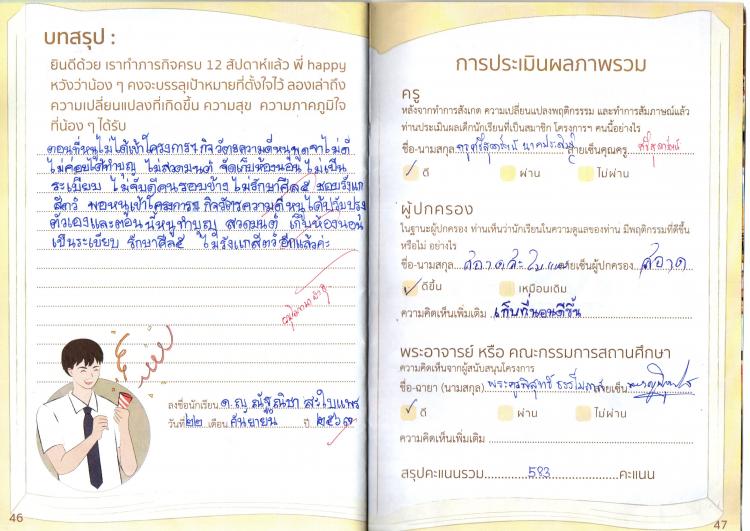 บทสรุป :
ยินดีด้วย เราทำภารกิจครบ 12 สัปดาห์แล้ว พี่ happy
หวังว่าน้อง ๆ คงจะบรรลุเป้าหมายที่ตั้งใจไว้ ลองเล่าถึง
ความเปลี่ยนแปลงที่เกิดขึ้น ความสุข ความภาคภูมิใจ
ที่น้อง ๆ ได้รับ
ตอนที่หนูไม่ได้เข้าโครงการฯ กิจวัตรความดีหนูพูดจาไม่ดี
ไม่ค่อยได้ทำบุญ ไม่สวดมนต์ จัดเก็บห้องนอน ไม่เป็น
ระเบียบ ไม่จับดีคนรอบข้าง ไม่รักษาศีล๕ ชอบรังแก
สัตว์ พอหนูเข้าโครงการฯ กิจวัตรความดีหนูได้ปรับปรุง
ตัวเองและตอนนี้หนูทำบุญ สวดมนต์ เก็บห้องนอน
เป็นระเบียบ รักษาศีล๕ ไม่รังแกสัตว์อีกแล้วค่ะ
ลงชื่อนักเรียน ด.ญ ณัฐณิชา สะใบแพร
วันที่ ๒๒ เดือน กันยายน ปี ๒๕๖๗
46
การประเมินผลภาพรวม
ครู
หลังจากทำการสังเกต ความเปลี่ยนแปลงพฤติกรรม และทำการสัมภาษณ์แล้ว
ท่านประเมินผลเด็กนักเรียนที่เป็นสมาชิก โครงการฯ คนนี้อย่างไร
ชื่อ-นามสกุล ครูศรีสุดารัตน์ ลายเซ็นคุณครู ศรีสุดารัตน์
ดี ผ่าน ไม่ผ่าน
ผู้ปกครอง
ในฐานะผู้ปกครอง ท่านเห็นว่านักเรียนในความดูแลของท่าน มีพฤติกรรมที่ดีขึ้น
หรือไม่ อย่างไร
ชื่อ-นามสกุล สอาด สะใบแพร ลายเซ็นผู้ปกครอง สอาด
ดีขึ้น เหมือนเดิม
ความคิดเห็นเพิ่มเติม เก็บที่นอนดีขึ้น
พระอาจารย์ หรือ คณะกรรมการสถานศึกษา
ความคิดเห็นจากผู้สนับสนุนโครงการ
ชื่อ-ฉายา (นามสกุล) พระครูพิสุทธิ์ ลายเซ็น
ดี ผ่าน ไม่ผ่าน
ความคิดเห็นเพิ่มเติม
สรุปคะแนนรวม 583 คะแนน
47